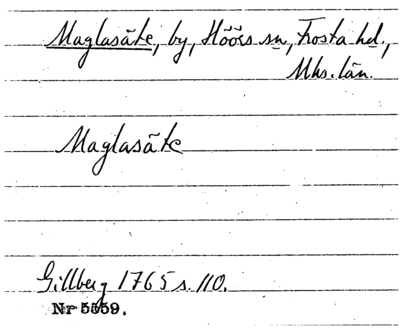 Maglasäte, by, Höörs sn, Frosta hd.,
Mhs. län.
Maglasäte
Gillberg 1765 s. 110.
Nr 5559.